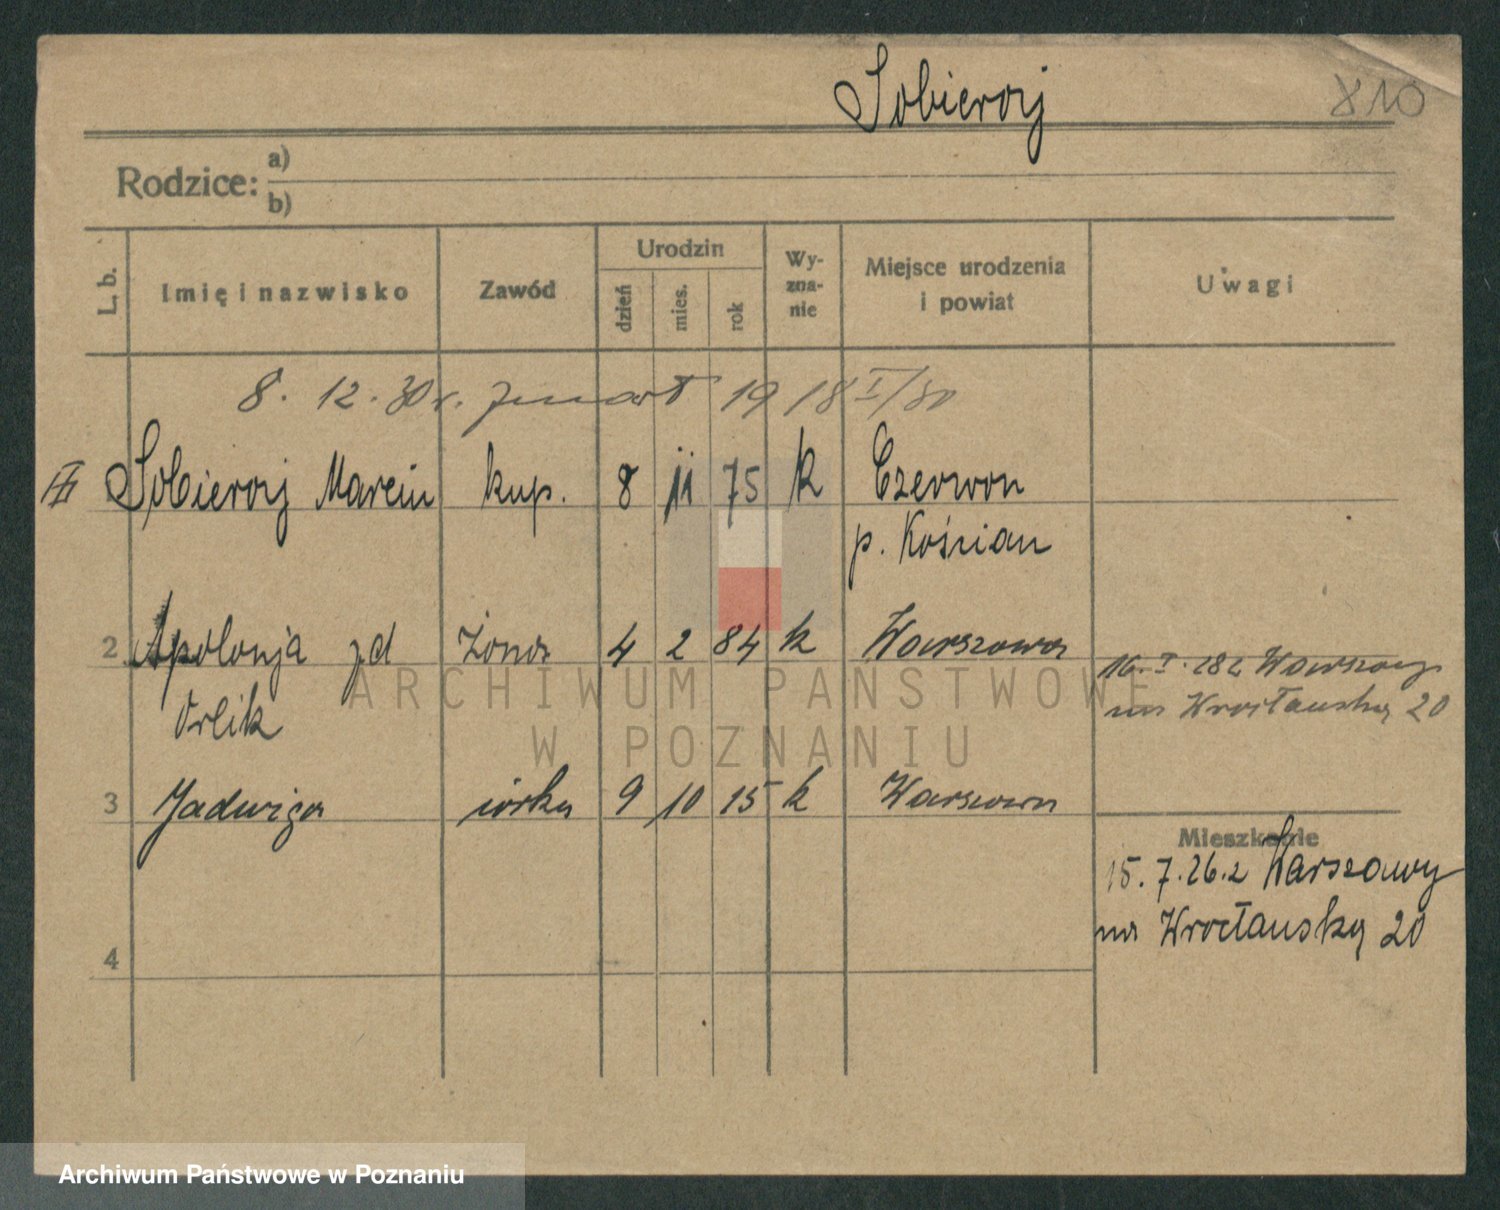 Sobieraj
810
Rodzice: a)
b)
L. b.
Imię i nazwisko
Zawód
Urodzin
dzień
mies.
rok
Wy-
zna-
nie
Miejsce urodzenia
i powiat
Uwagi
8. 12. 30 r. zmarł 19 18 I/30
Sobieraj Marcin kup. 8 11 75 k Czerwon
p. Kościan
2 Apolonja zd żona 4 2 84 k Warszawa
Orlik
16. I. 28 z Warszawy
na Wrocławską 20
3 Jadwiga córka 9 10 15 k Warszawa
Mieszkanie
15. 7. 26. z Warszawy
na Wrocławską 20
4
ARCHIWUM PAŃSTWOWE
W POZNANIU
Archiwum Państwowe w Poznaniu